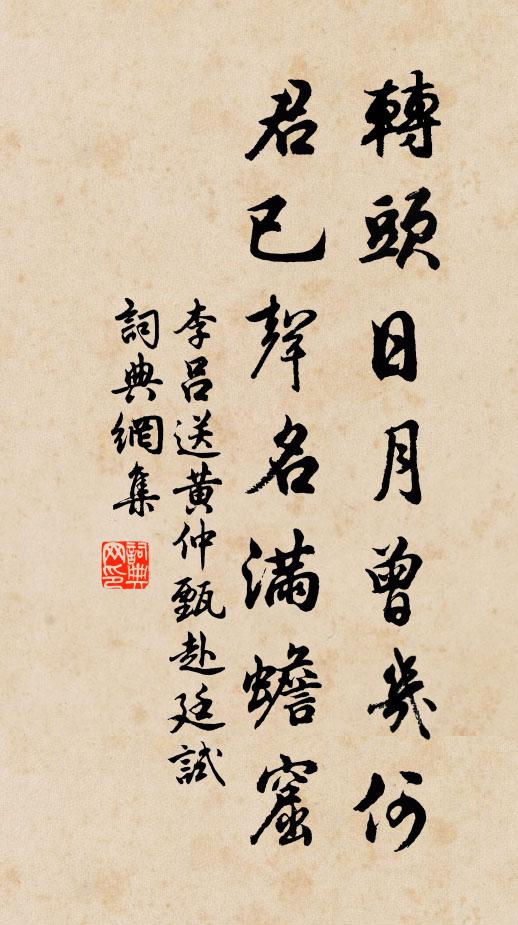 轉頭日月曾幾何
君已聲名滿蟾窟
李呂送黃仲甄赴廷試
詞典網集
詞典网印